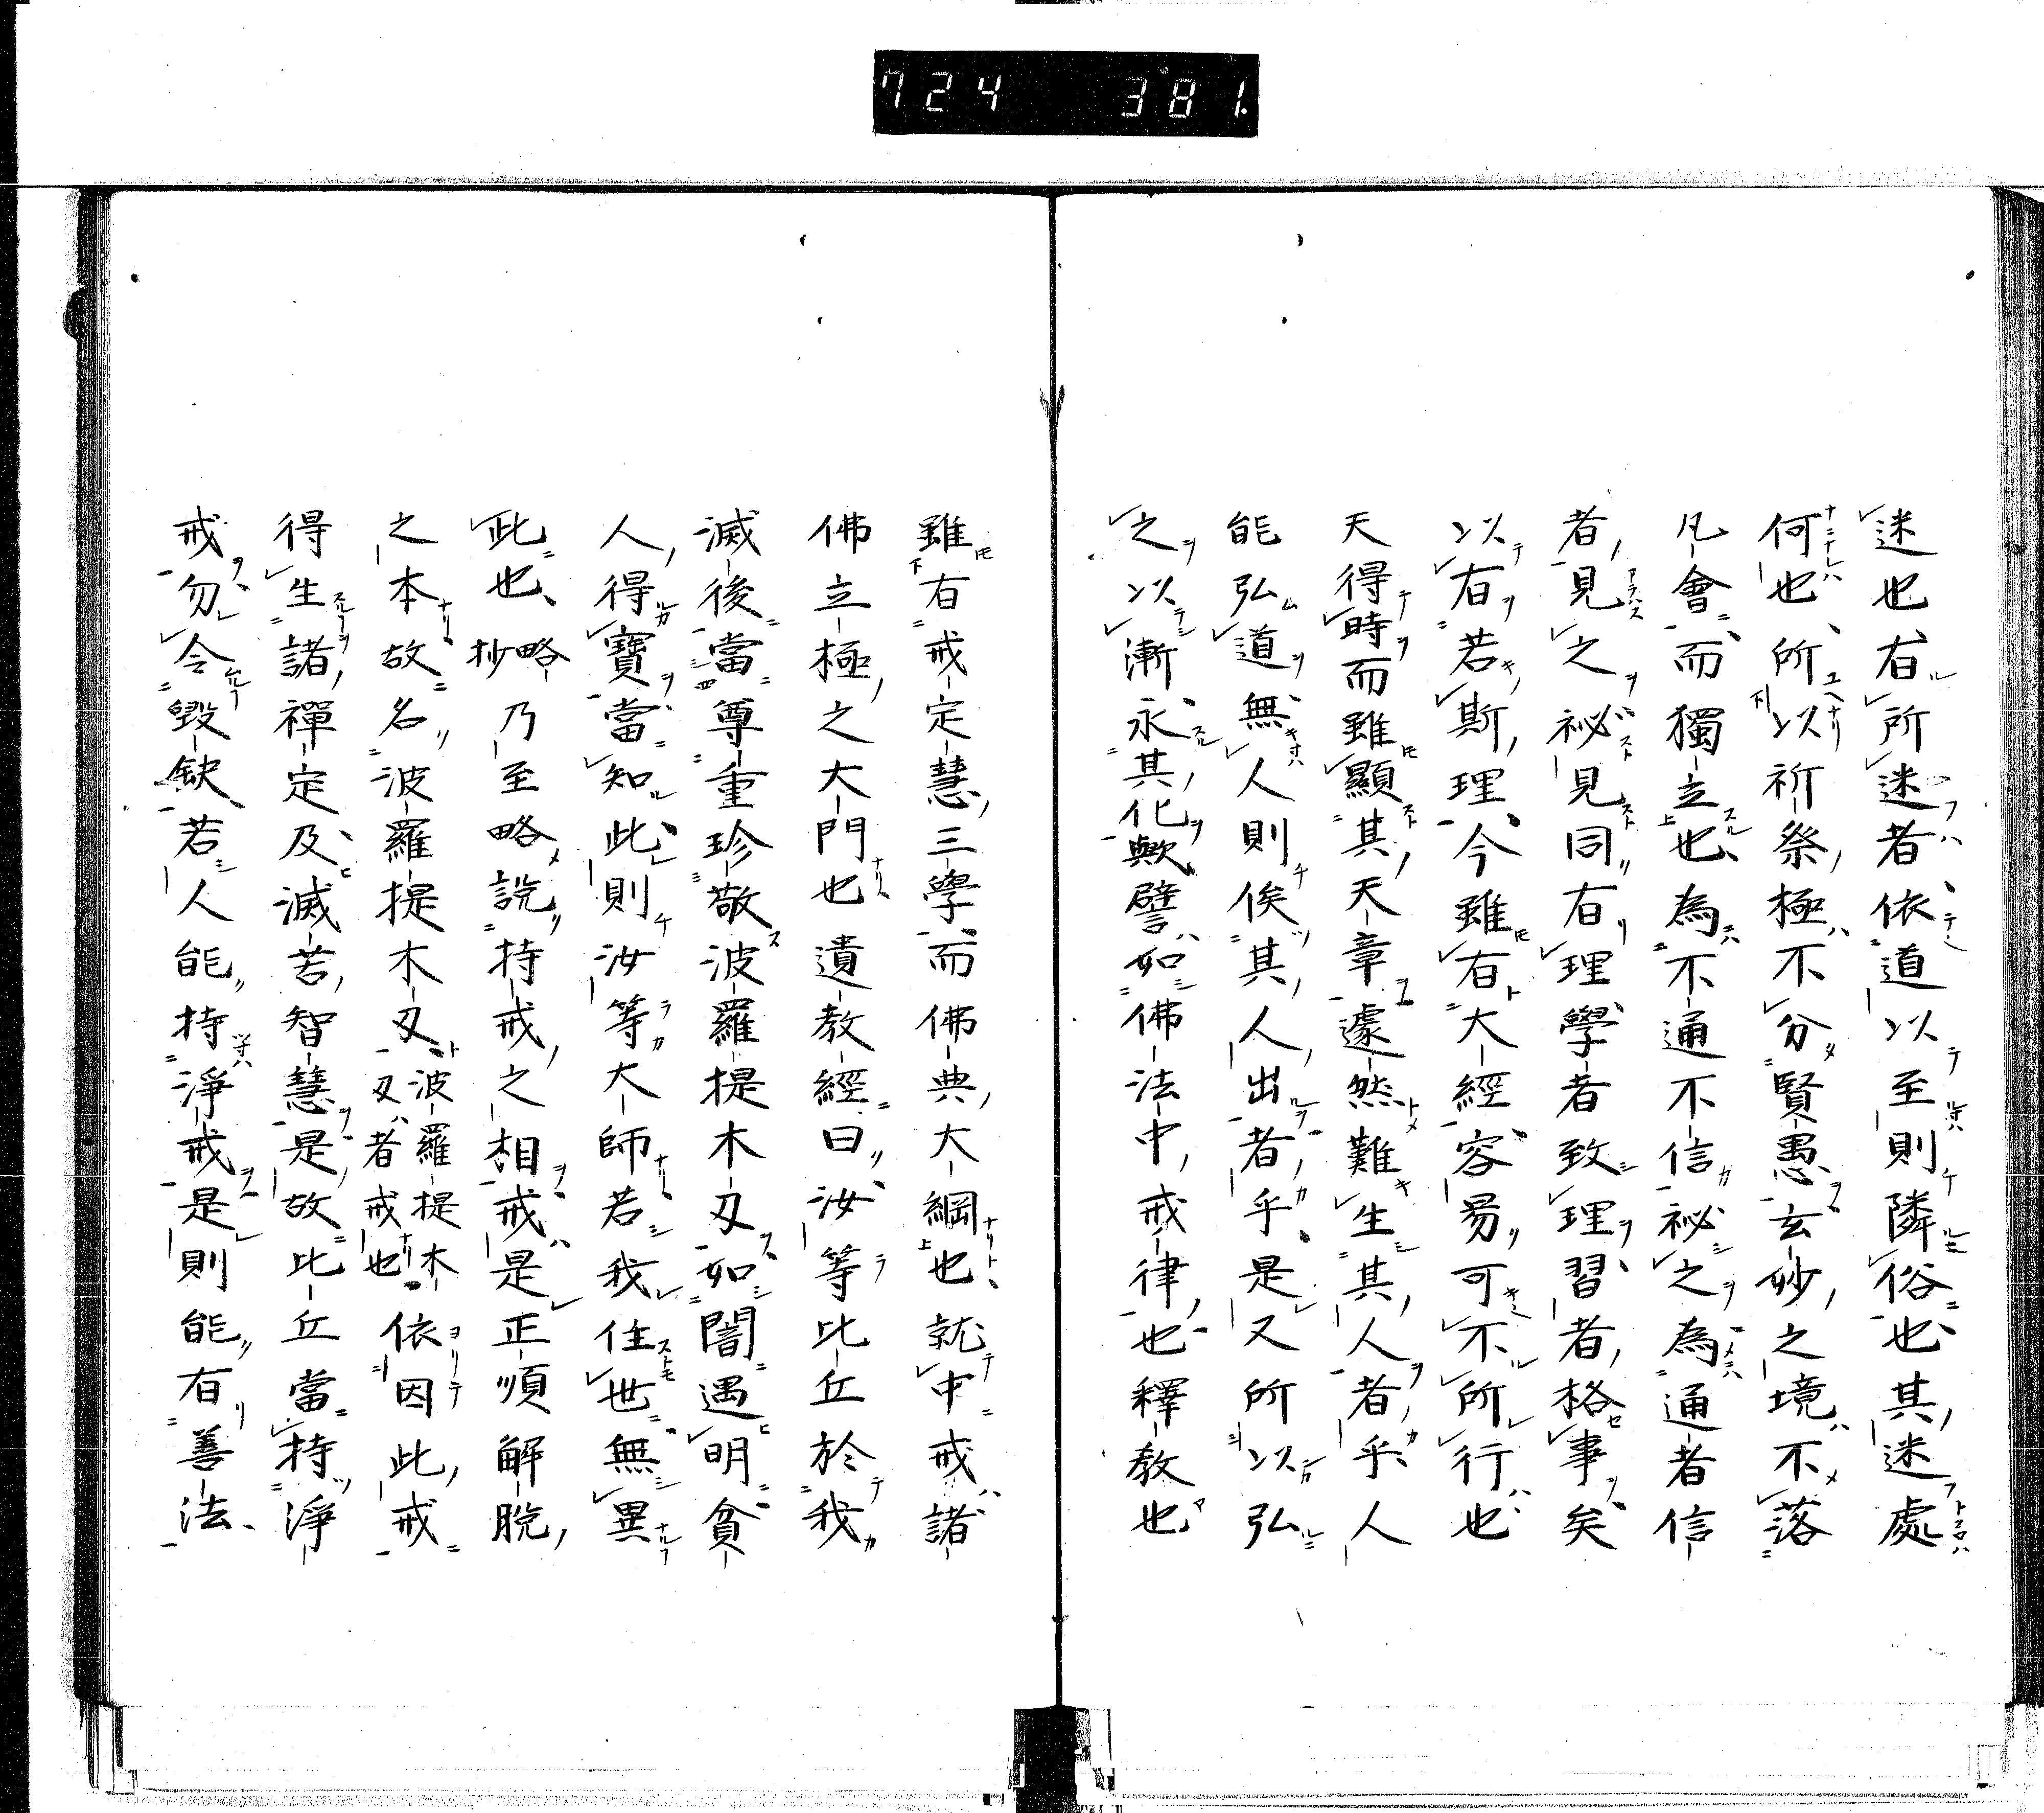 724 381.
迷也有所迷者依道以至則隣俗也其迷處
何也所以祈祭極不分賢愚玄妙之境不落
凡會而獨立也為不通不信祕之為通者信
者見之祕見同有理學者致理習者格事矣
以有若斯理今雖有大經容易可不所行也
天得時而雖顯其天章遽然難生其人者乎人
能弘道無人則俟其人出者乎是又所以弘
之以漸永其化歟譬如佛法中戒律也釋教也
雖有戒定慧三學而佛典大綱也就中戒諸
佛立極之大門也遺教經曰汝等比丘於我
滅後當尊重珍敬波羅提木叉如闇遇明貧
人得寶當知此則汝等大師若我住世無異
此也略抄乃至略説持戒之相戒是正順解脱
之本故名波羅提木叉波羅提木叉者戒也依因此戒
得生諸禪定及滅苦智慧是故比丘當持淨
戒勿令毀缺若人能持淨戒是則能有善法